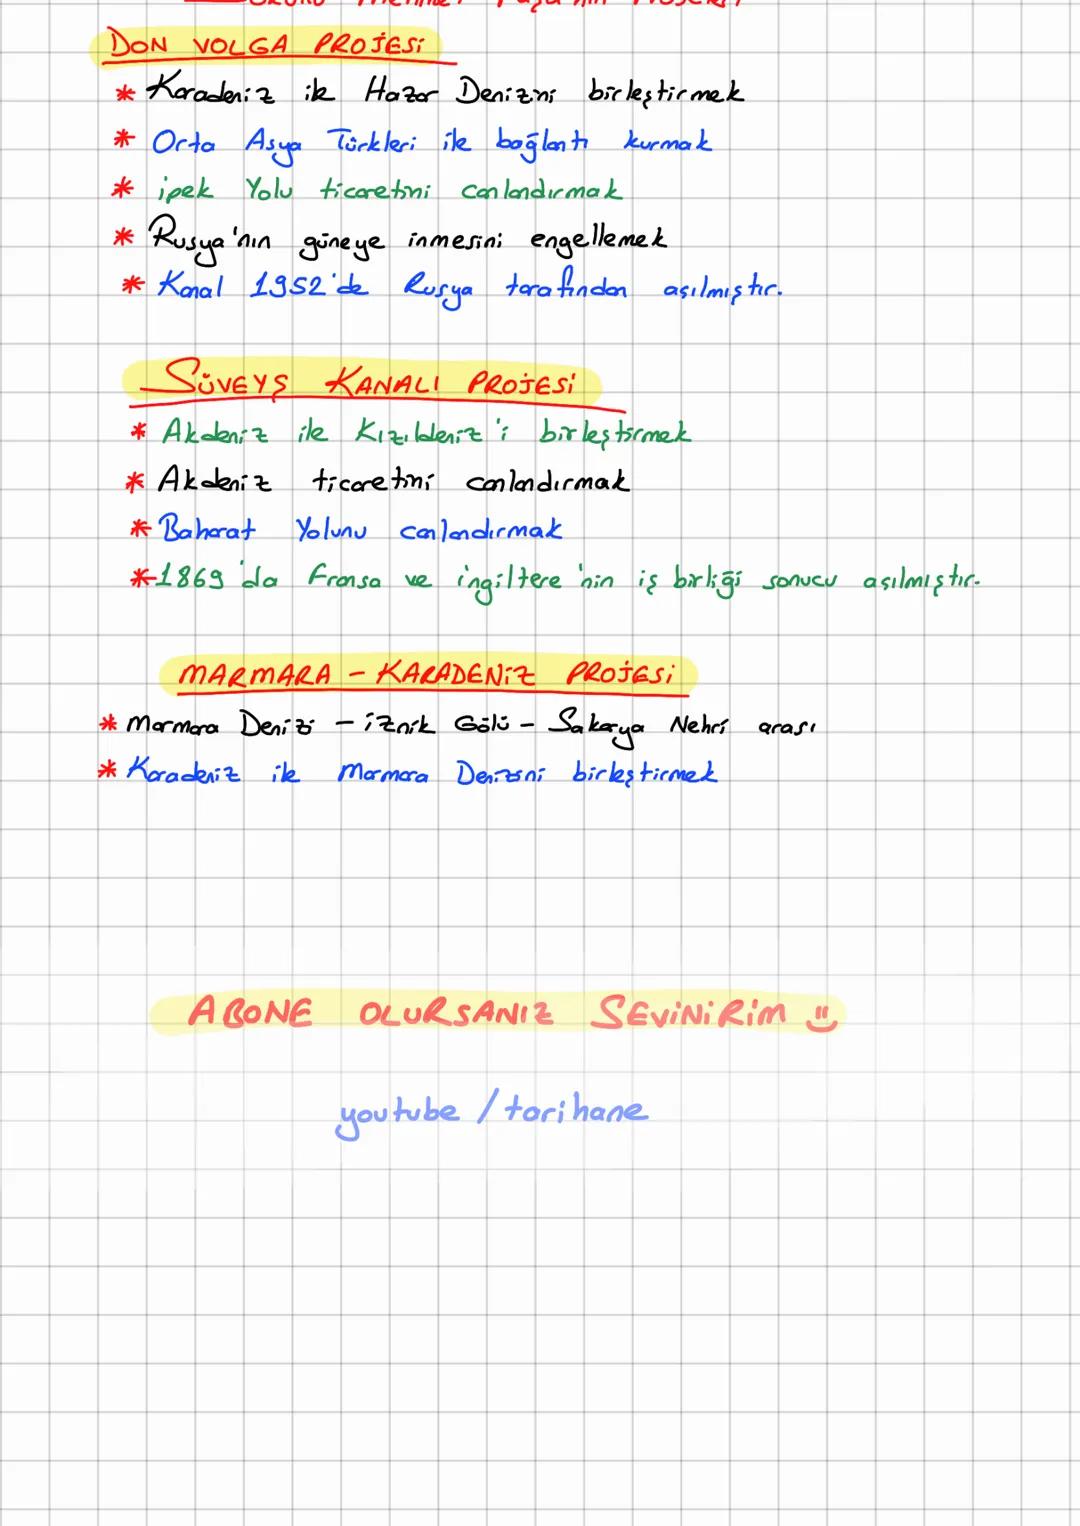 Sokullu Mehmet Paşa'nın Projeleri
DON VOLGA PROJESİ
* Karadeniz ile Hazar Denizini birleştirmek
* Orta Asya Türkleri ile bağlantı kurmak
* ipek Yolu ticaretini canlandırmak
* Rusya'nın güneye inmesini engellemek
* Kanal 1952'de Rusya tarafından açılmıştır.
SÜVEYŞ KANALI PROJESİ
* Akdeniz ile Kızıldeniz'i birleştirmek
* Akdeniz ticaretini canlandırmak
* Baharat Yolunu canlandırmak
* 1869'da Fransa ve ingiltere'nin iş birliği sonucu açılmıştır.
MARMARA - KARADENİZ PROJESİ
* Marmara Denizi - iznik Gölü - Sakarya Nehri arası
* Karadeniz ile Marmara Denizini birleştirmek
ABONE OLURSANIZ SEVİNİRİM
youtube / tarihane